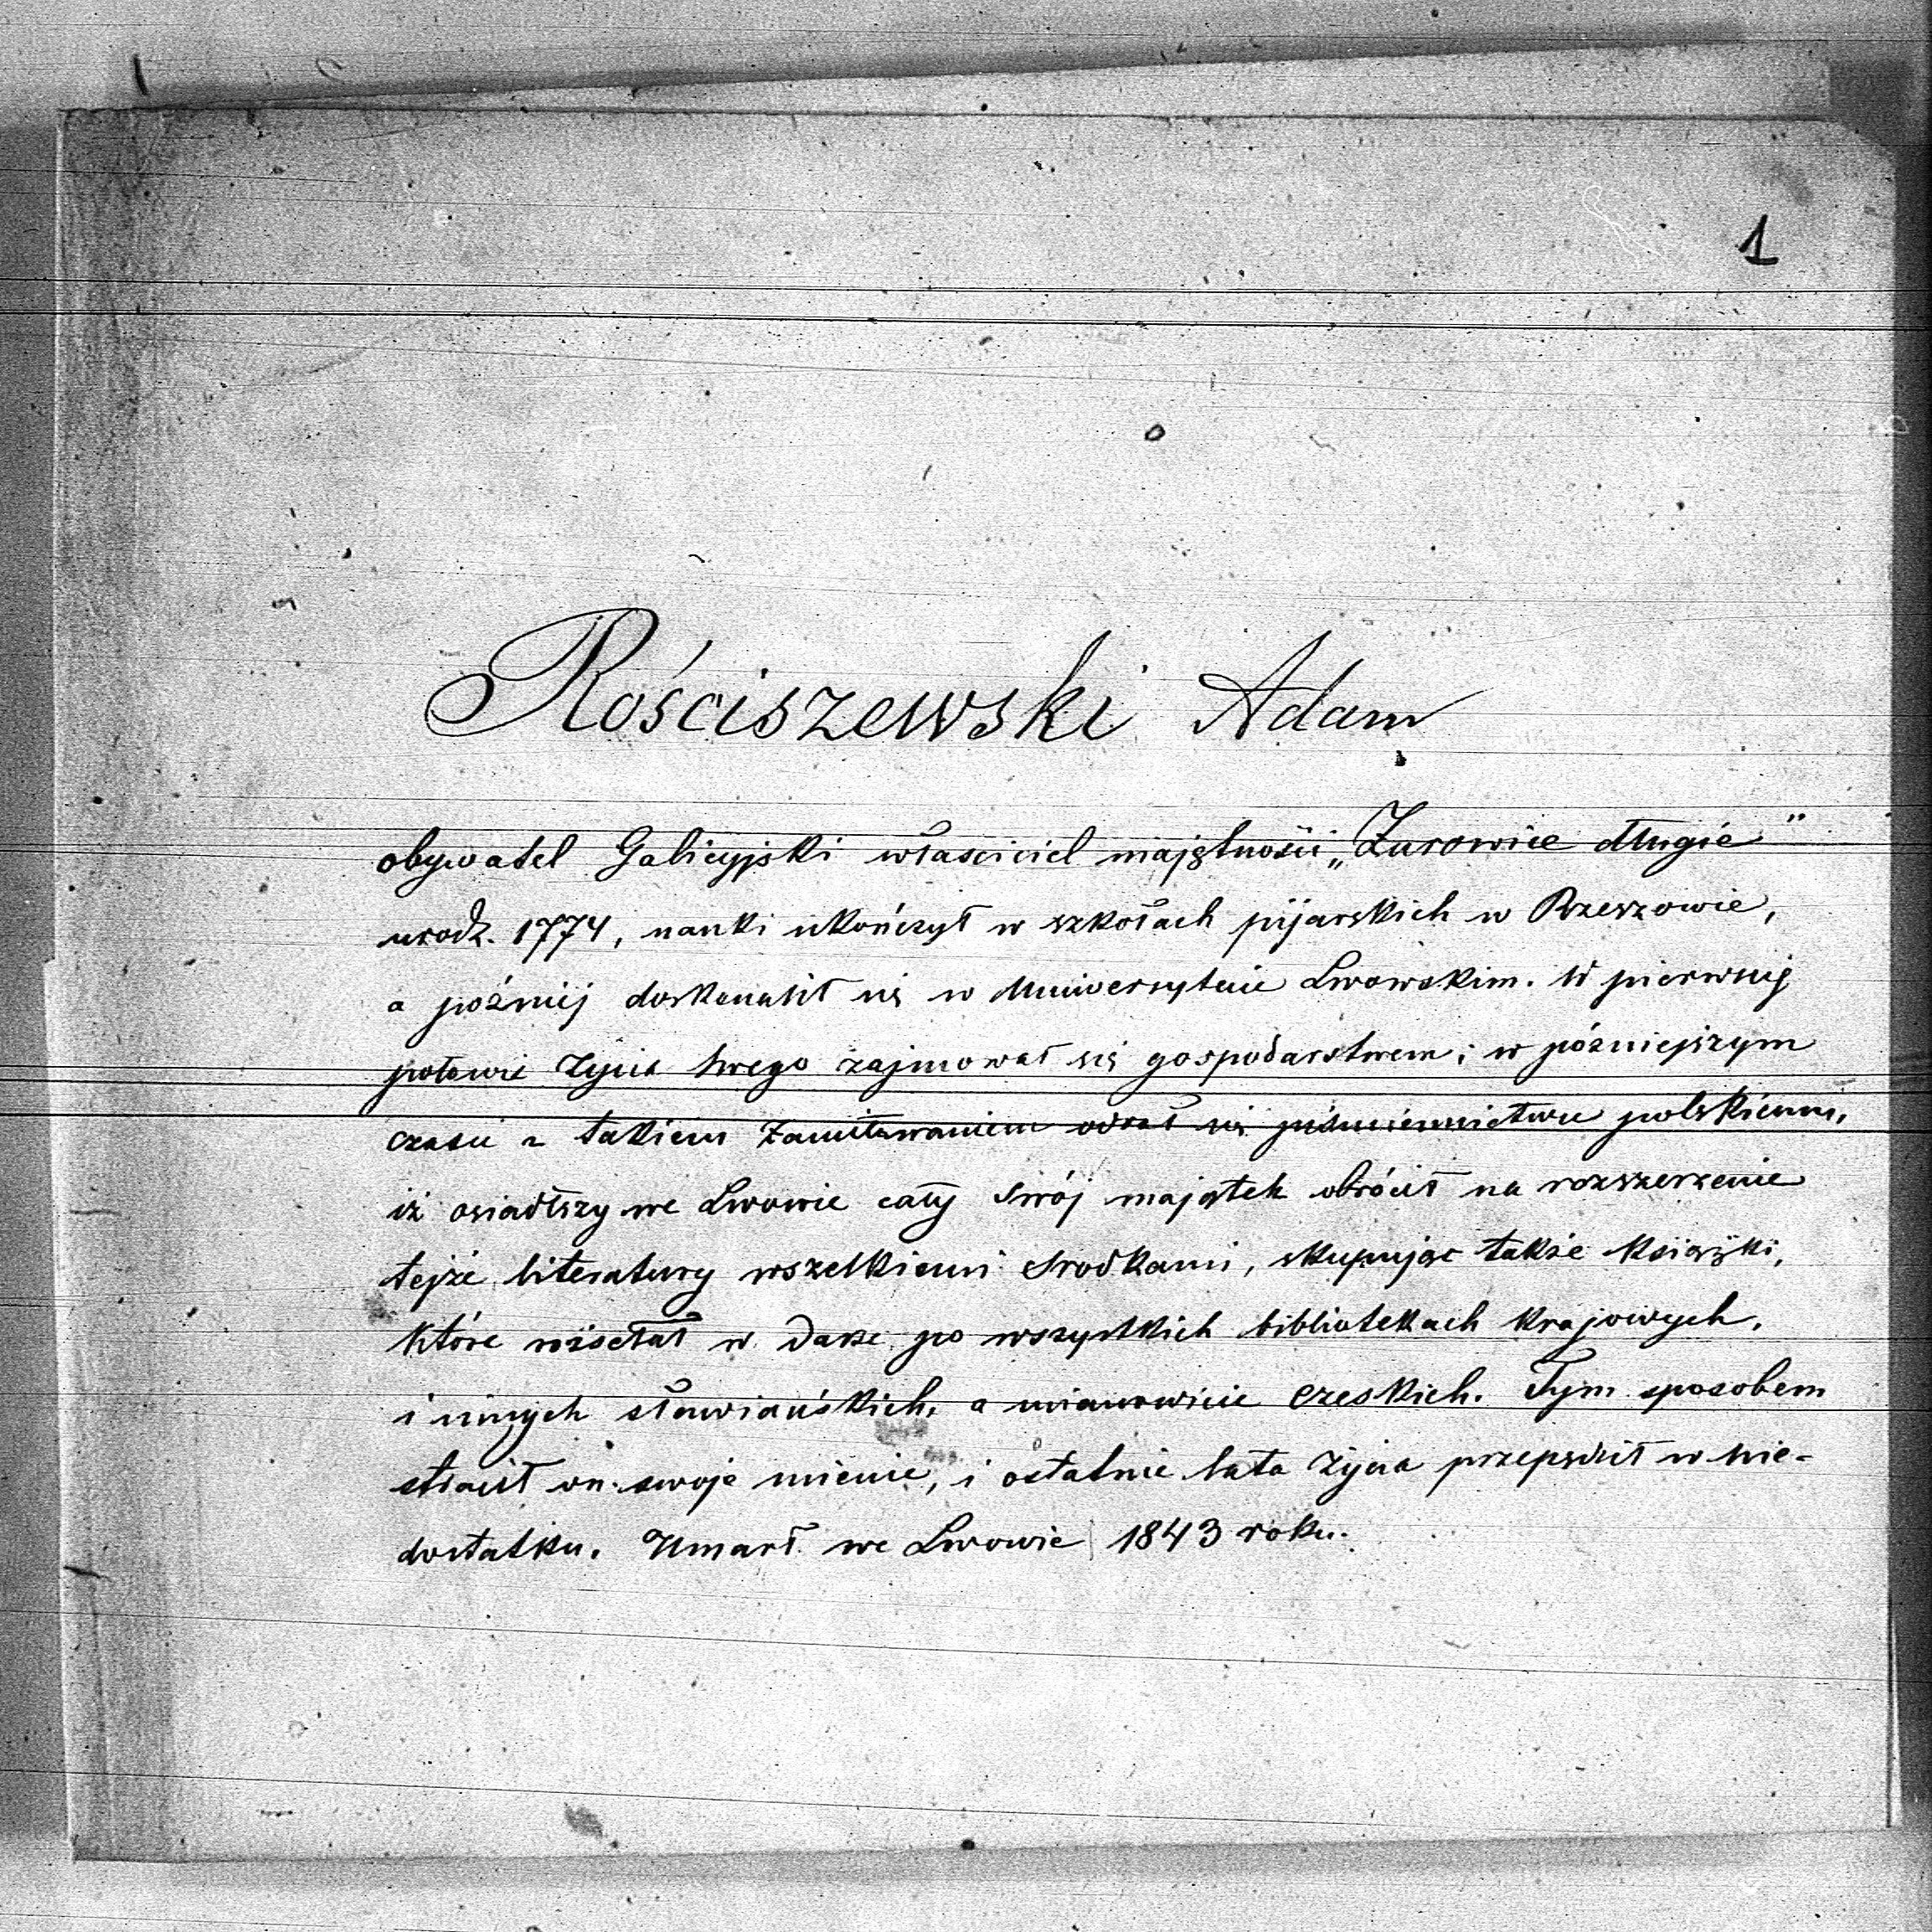 1
Rościszewski Adam
obywatel Galicyjski właściciel majętności „Żurowice długie"
urodz. 1774, nauki ukończył w szkołach pijarskich w Rzeszowie,
a późniéj doskonalił się w Uniwersytecie Lwowskim. W pierwszéj
połowie życia swego zajmował się gospodarstwem; w późniejszym
czasie z takiem zamiłowaniem oddał się piśmiennictwu polskiemu,
iż osiadłszy we Lwowie cały swój majątek obrócił na rozszerzenie
tejże literatury wszelkiemi środkami, skupując także książki,
które rozsełał w darze po wszystkich bibliotekach krajowych,
i innych sławiańskich, a mianowicie czeskich. Tym sposobem
stracił on swoje mienie, i ostatnie lata życia przepędził w nie-
dostatku. Umarł we Lwowie 1843 roku.